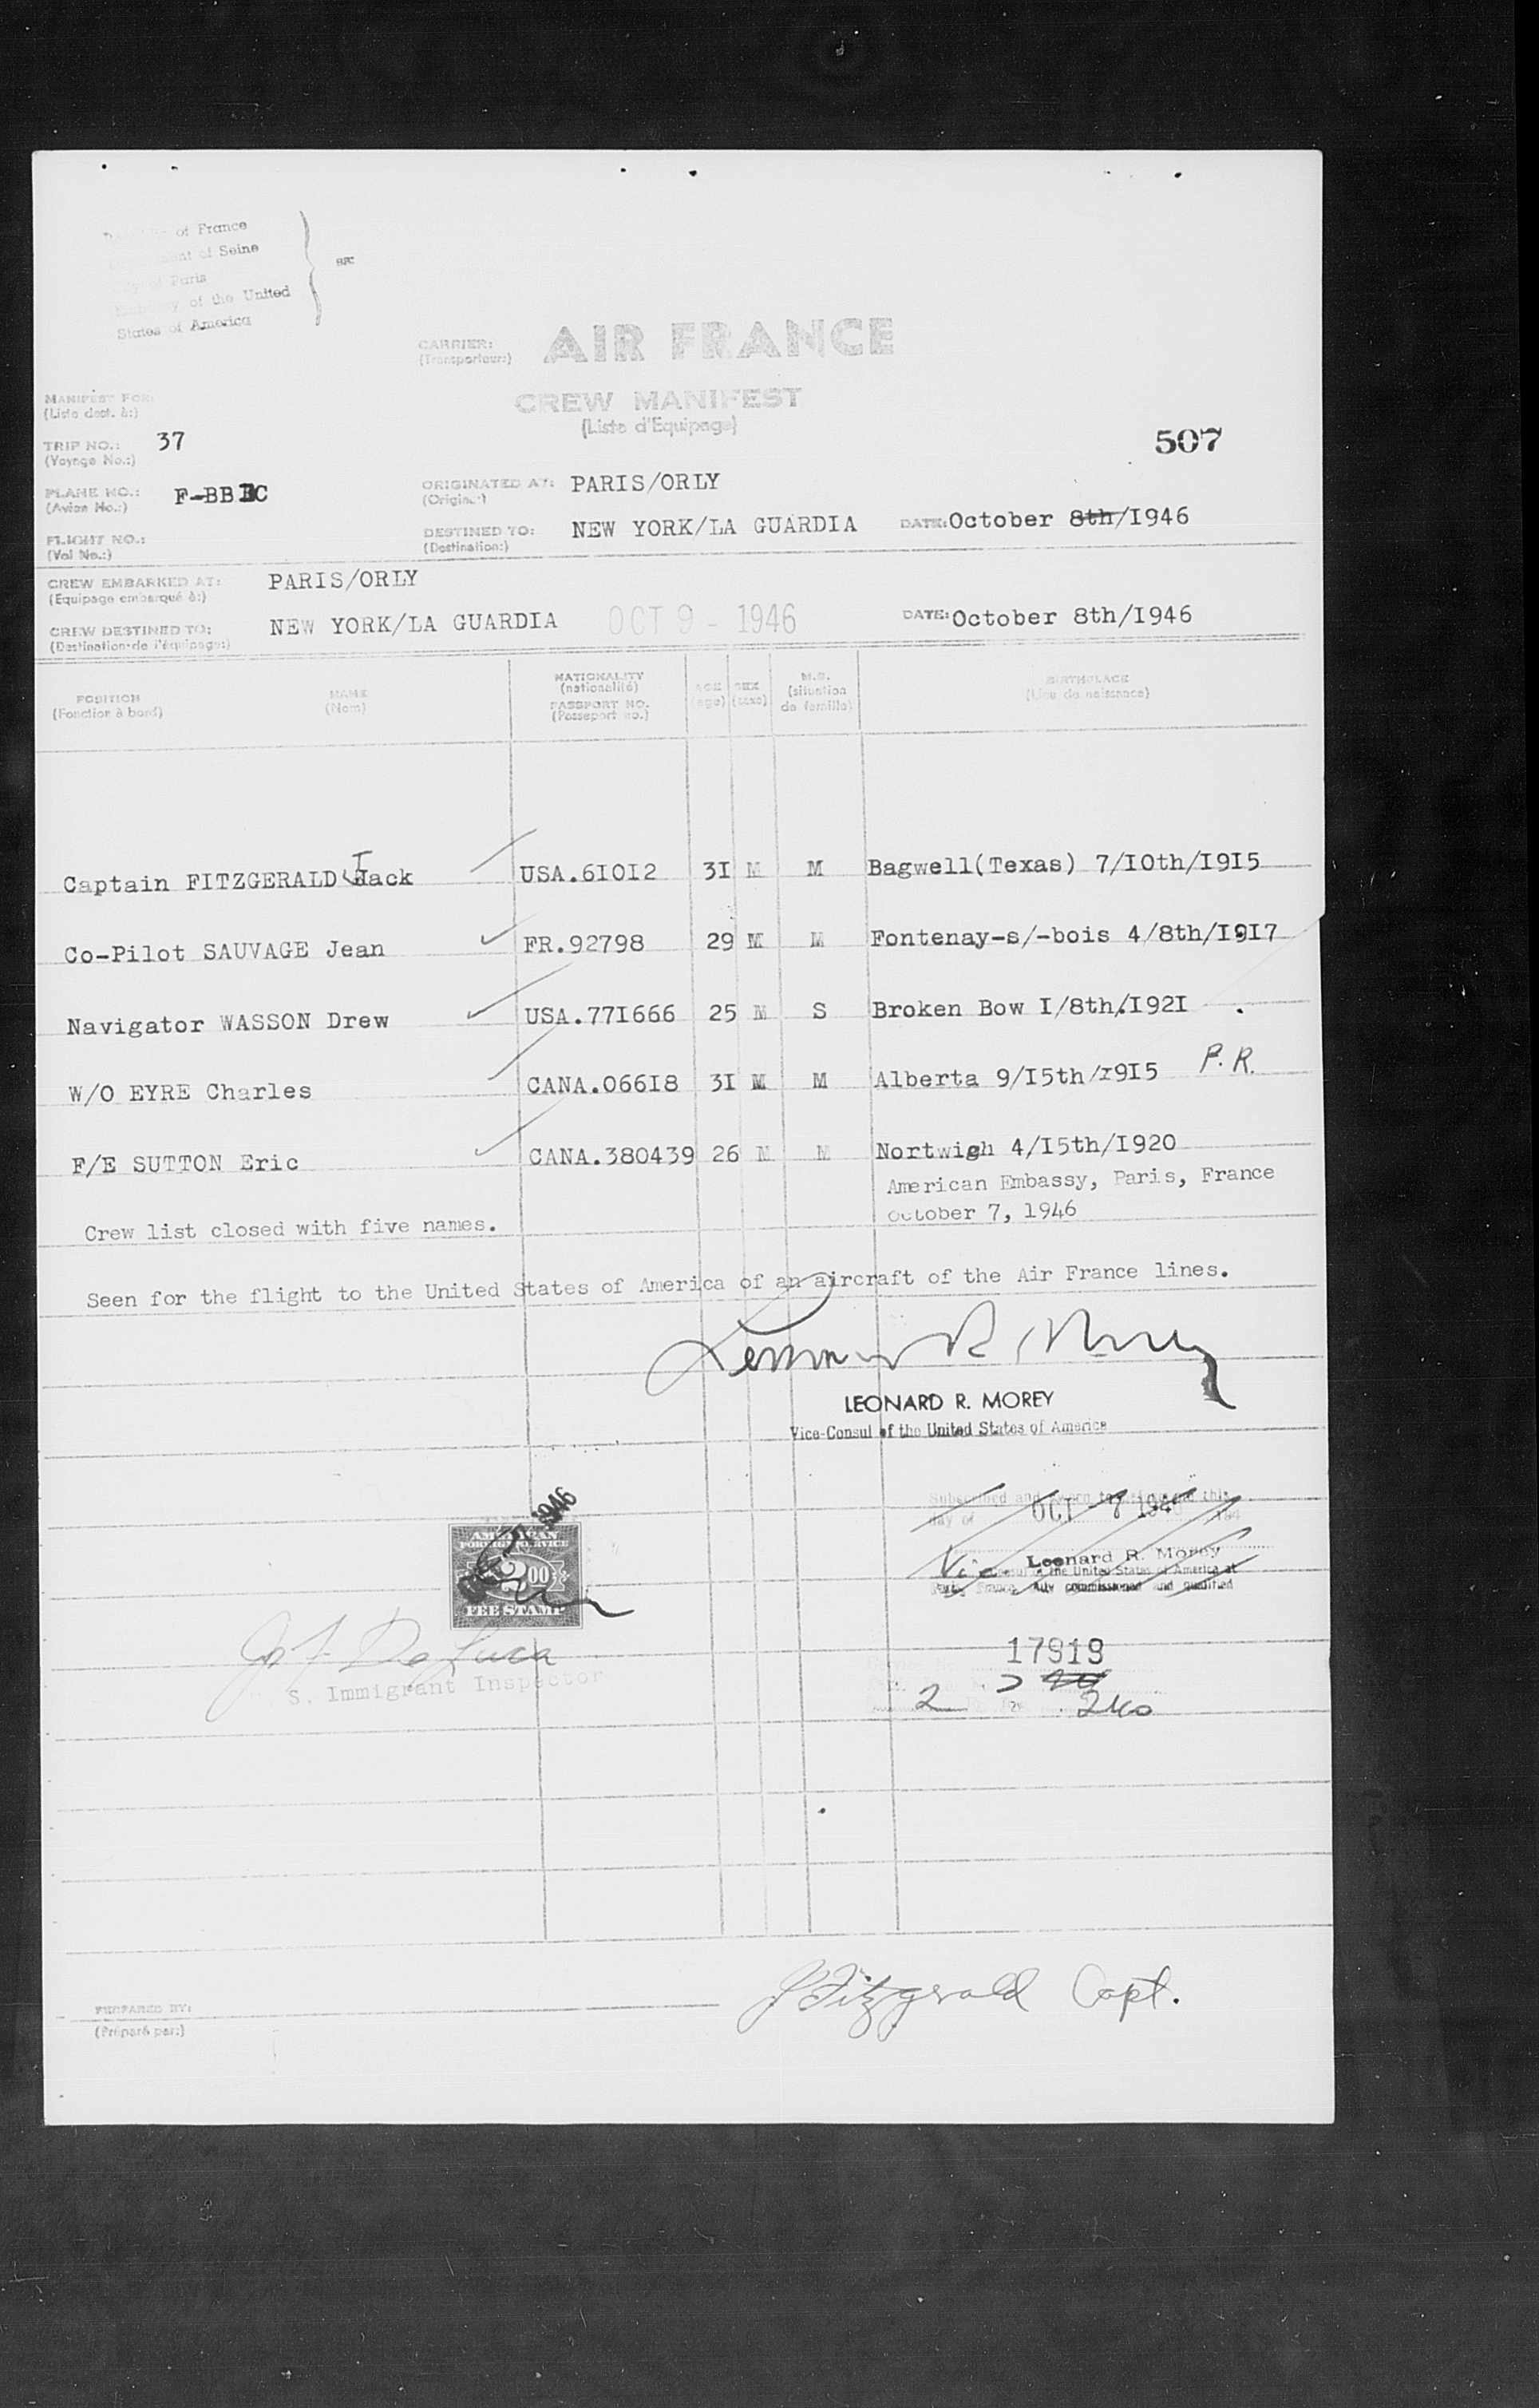 of France
of Seine
Paris
of the United
States of America
CARRIER: AIR FRANCE
(Transporteur:)
MANIFEST FOR:
(Liste dest. à:)
CREW MANIFEST
(Liste d'Equipage)
TRIP NO.: 37
(Voyage No.:)
507
PLANE NO.: F-BB C
(Avion No.:)
ORIGINATED AT: PARIS/ORLY
(Origine:)
FLIGHT NO.:
(Vol No.:)
DESTINED TO: NEW YORK/LA GUARDIA DATE: October 8th/I946
(Destination:)
CREW EMBARKED AT: PARIS/ORLY
(Equipage embarqué à:)
CREW DESTINED TO: NEW YORK/LA GUARDIA OCT 9 - 1946 DATE: October 8th/I946
(Destination de l'équipage:)
POSITION NAME NATIONALITY AGE SEX M.S. BIRTHPLACE
(Fonction à bord) (Nom) (nationalité) (age) (sexe) (situation de famille) (Lieu de naissance)
PASSPORT NO.
(Passeport no.)
Captain FITZGERALD Jack USA.6I0I2 3I M M Bagwell(Texas) 7/I0th/I9I5
Co-Pilot SAUVAGE Jean FR.92798 29 M M Fontenay-s/-bois 4/8th/I9I7
Navigator WASSON Drew USA.77I666 25 M S Broken Bow I/8th/I92I
W/O EYRE Charles CANA.066I8 3I M M Alberta 9/I5th/I9I5 P.R.
F/E SUTTON Eric CANA.380439 26 M M Nortwigh 4/I5th/I920
American Embassy, Paris, France
October 7, 1946
Crew list closed with five names.
Seen for the flight to the United States of America of an aircraft of the Air France lines.
Leonard R. Morey
LEONARD R. MOREY
Vice-Consul of the United States of America
Subscribed and sworn to before me this
day of OCT - 7 1946 194
Vice Leonard R. Morey
Consul of the United States of America at
Paris, France, duly commissioned and qualified
1946
AMERICAN
FOREIGN SERVICE
2 00
FEE STAMP
De Luca
S. Immigrant Inspector
17919
2 240
J Fitzgerald Capt.
PREPARED BY:
(Préparé par:)